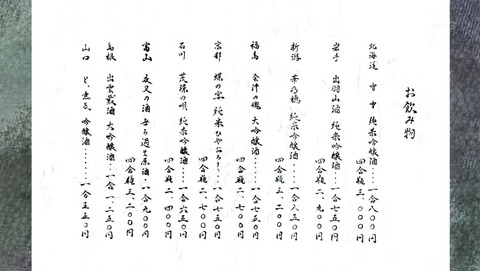 お飲み物
北海道 雪中 純米吟醸酒‥‥一合八〇〇円
四合瓶三、〇〇〇円
岩手 出羽山酒 純米吟醸酒‥‥一合七五〇円
四合瓶二、九〇〇円
新潟 幸乃橋 純米吟醸酒‥‥一合八五〇円
四合瓶三、二〇〇円
福島 会津の魂 大吟醸酒‥‥一合七五〇円
四合瓶二、八〇〇円
京都 蝶の宴 純米ひやおろし‥一合七五〇円
四合瓶二、七〇〇円
石川 純米吟醸酒‥‥一合六五〇円
四合瓶二、四〇〇円
富山 夜叉の酒 原酒・一合九〇〇円
四合瓶三、二〇〇円
島根 出雲 大吟醸酒‥一合一、二五〇円
山口 吟醸酒‥‥‥一合五五〇円